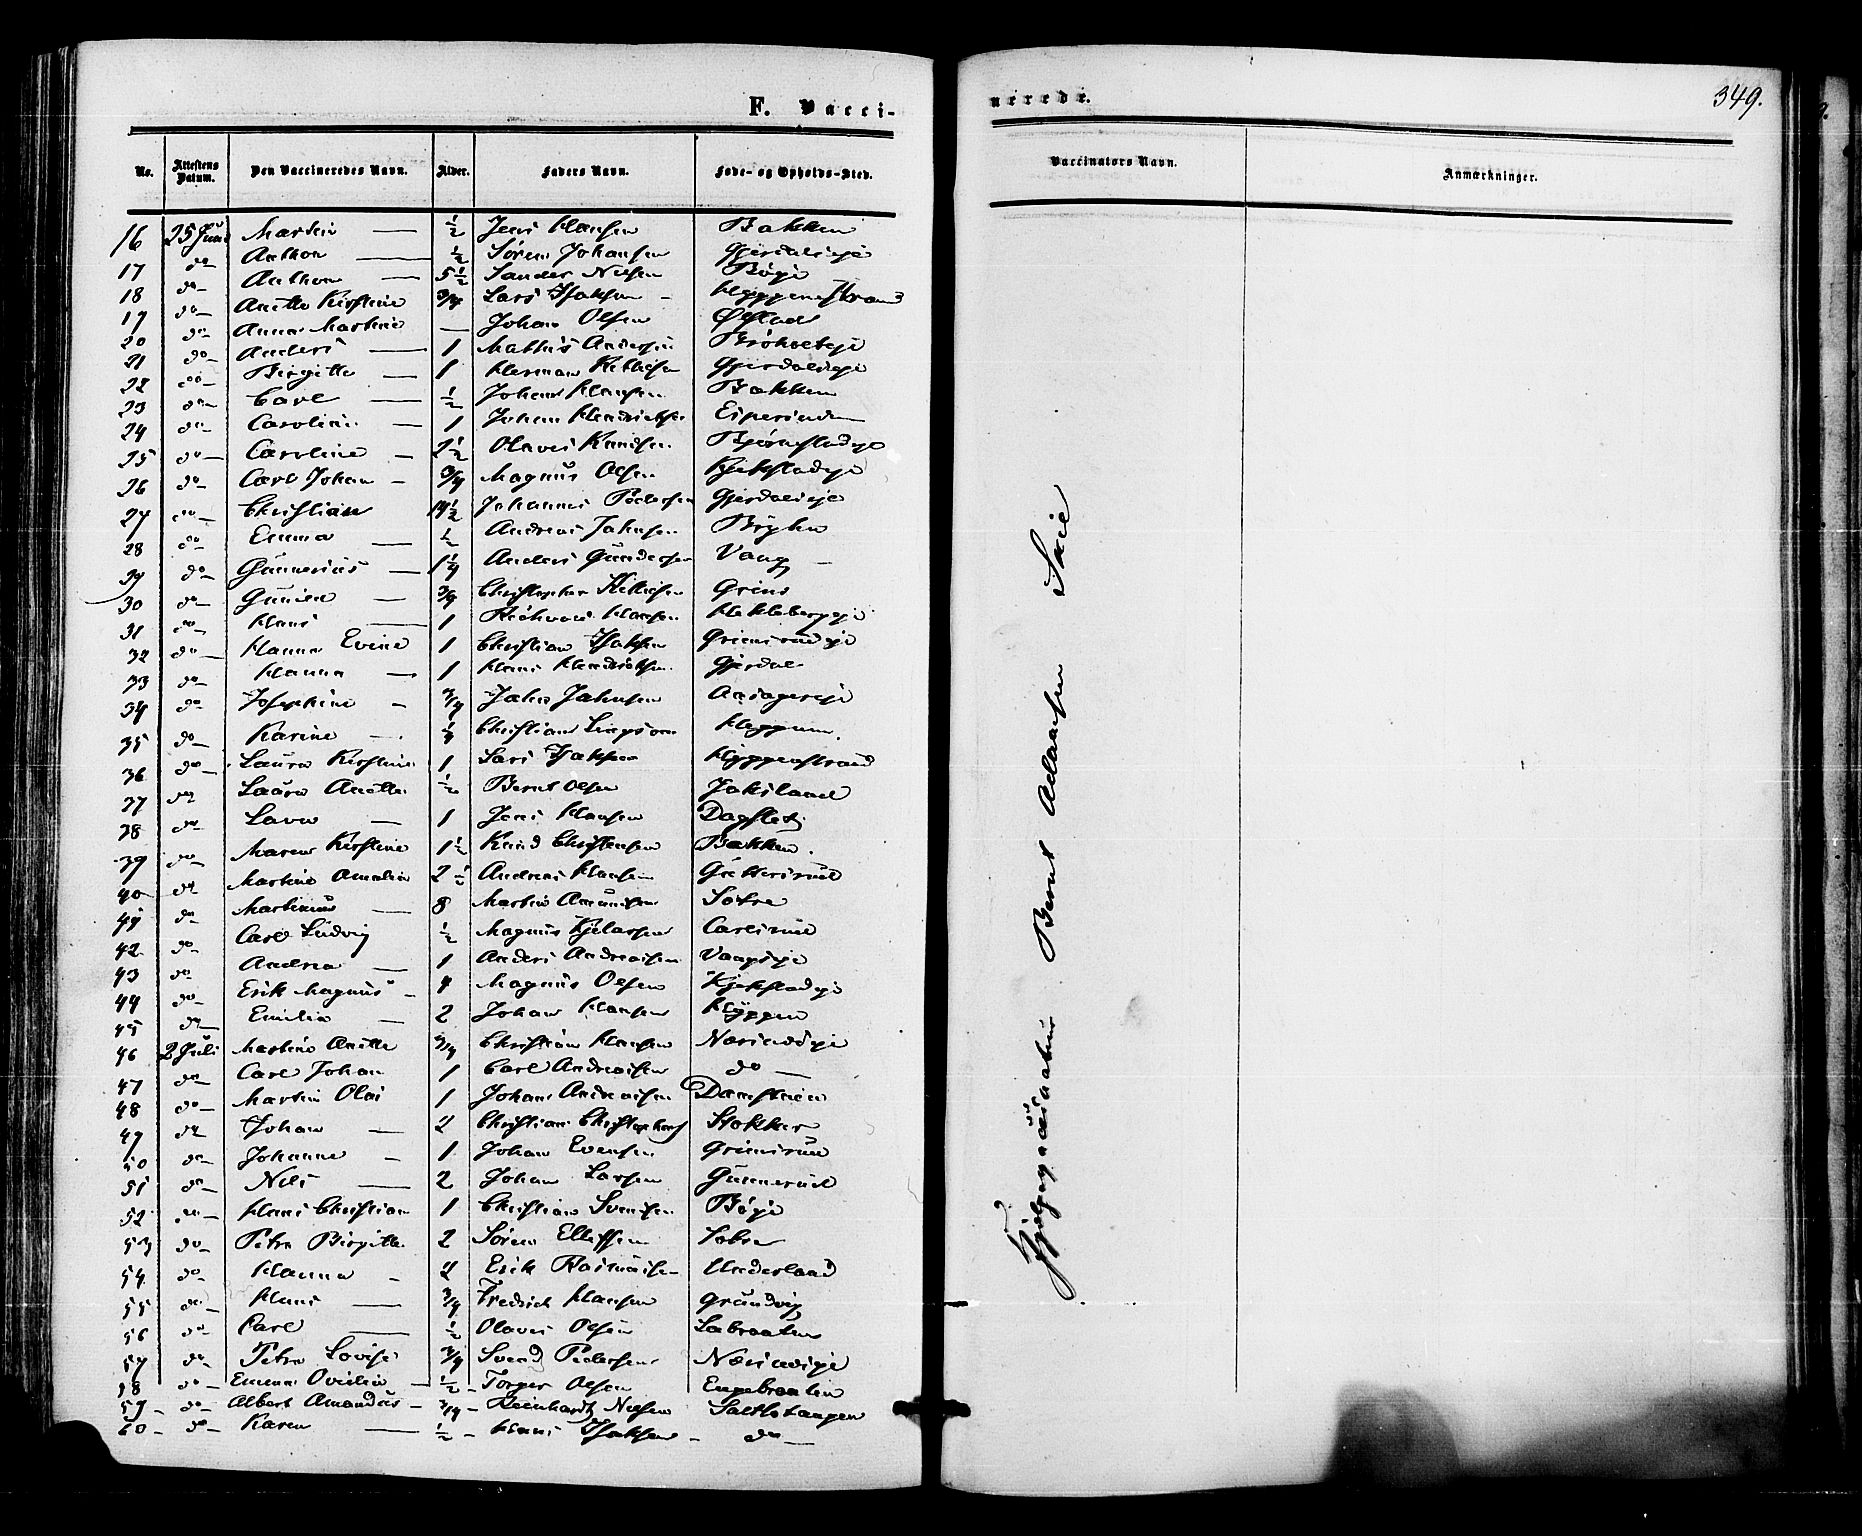 F. Vacci-
No. Attestens Datum. Den Vaccineredes Navn. Alder. Faders Navn. Føde- og Opholds-Sted.
16 25 Juni Martin — ½ Jens Hansen Bakken
17 do Anthon — ½ Søren Johansen Gjerdaleje
18 do Anthon — 5½ Sander Nielsen Bøeje
19 do Anette Kirstine 3/4 Lars Isaksen Kløggenstrand
20 do Anna Martine — Johan Olsen Øfstad
21 do Anders — 1 Mathis Andersen
22 do Birgitte — 1 Herman Gjerdaleje
23 do Carl — ½ Johan Hansen Bakken
24 do Caroline — 1 Johan Hendriksen
25 do Caroline — 2½ Olaves Knudsen Bjørnstadeje
26 do Carl Johan — 3/4 Magnus Olsen Kjekstadeje
27 do Christian Johannes Pedersen Gjerdaleje
28 do Emma — ½ Andreas Jahnsen
29 do Gunnerius — 1¼ Anders Gundersen Vang
30 do — 3/4 Christopher
31 do Hans — 1 Hansen Hekkebergeje
32 do Hanna Evine 1 Christian Isaksen Grimsrudeje
33 do Hanna — 1 Hans Hendriksen Gjerdal
34 do Josephine — 3/4 Jahn Jahnsen
35 do Karine — Christian
36 do Laura Kirstine 1 Lars Isaksen Kløggenstrand
37 do Laura Anette ½ Bernt Olsen
38 do — 1 Jens Hansen Dagslet
39 do Maren Kirstine 1½ Knud Christensen Bakken
40 do Martine Amalia 2½ Andreas Hansen
41 do Martinius — 8 Martin Amundsen Sætre
42 do Carl Ludvig ½ Magnus Carlsrud
43 do Andrea — 1 Anders Andreasen Vangseje
44 do Erik Magnus — 4 Magnus Olsen Kjekstadeje
45 do Emilie — 2 Johan Hansen Kløggen
46 2 Juli Martine Anette 3/4 Christian Hansen Næsinddeje
47 do Carl Johan 1 Carl Andreasen do
48 do Martin Olai 1 Johan Andreasen
49 do Johan — 2 Christian Christophers Stokker
50 do Johanne — 1 Johan Evensen Grimsrud
51 do Nils — 2 Johan Larsen Gunnerud
52 do Hans Christian 1 Christian Svendsen Bøeje
53 do Petra Birgitte 2 Søren Ellefsen Sætre
54 do Hanna — 2 Erik Rasmusen Underland
55 do Hans — 3/4 Fredrik Hansen Grundvig
56 do Carl — ½ Olaves Olsen Labraaten
57 do Petra Lovise 3/4 Svend Pedersen Næsindeje
58 do Emma Ovidia — ½ Torger Olsen Engebraaten
59 do Albert Amandus 3/4 Reinhardt Nielsen Sætletangen
60 do Karen — ½ Hans Isaksen do
nerede.
349.
Vaccinators Navn. Anmærkninger.
Hjelpevaccinateur Bernt Adamsen Skie